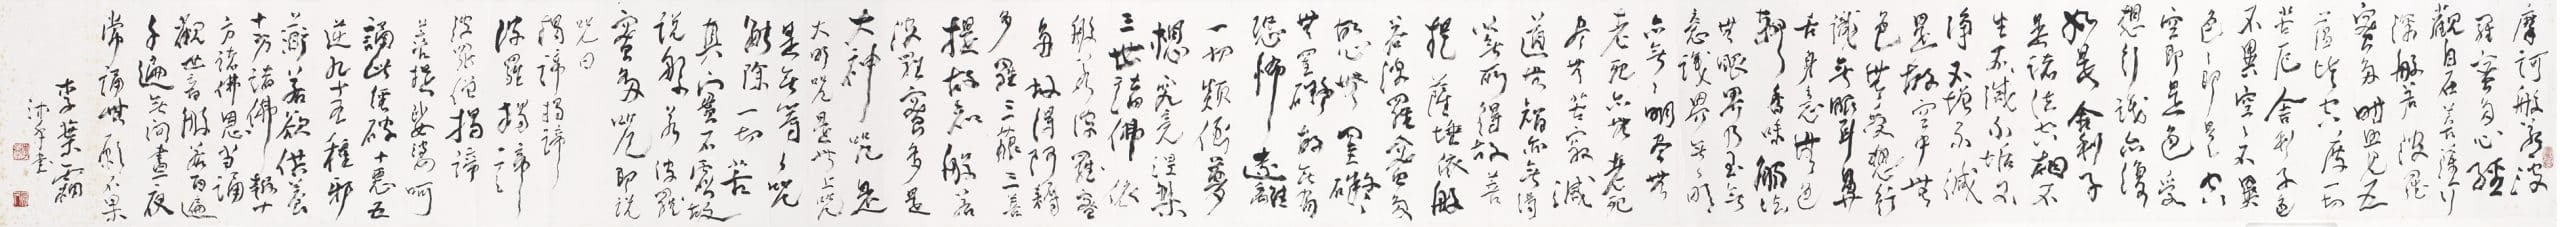 摩訶般若波
羅蜜多心經
觀自在菩薩行
深般若波羅
蜜多時照見五
蘊皆空度一切
苦厄舍利子色
不異空空不異
色色即是空
空即是色受
想行識亦復
如是舍利子
是諸法空相不
生不滅不垢不
淨不增不減
是故空中無
色無受想行
識無眼耳鼻
舌身意無色
聲香味觸法
無眼界乃至無
意識界無無明
亦無無明盡無
老死亦無老死
盡無苦寂滅
道無智亦無得
以無所得故菩
提薩埵依般
若波羅蜜多
故心無罣礙
無罣礙故無有
恐怖遠離
一切顛倒夢
想究竟涅槃
三世諸佛依
般若波羅蜜
多故得阿耨
多羅三藐三菩
提故知般若
波羅蜜多是
大神咒是
大明咒是無上咒
是無等等咒
能除一切苦
真實不虛故
說般若波羅
蜜多咒即說
咒曰
揭諦揭諦
波羅揭諦
波羅僧揭諦
菩提娑婆訶
誦此經破十惡五
逆九十五種邪
道若欲供養
十方諸佛報十
方諸佛恩當誦
觀世音般若百遍
千遍無問晝夜
常誦無願不果
李葉霜
沐手書